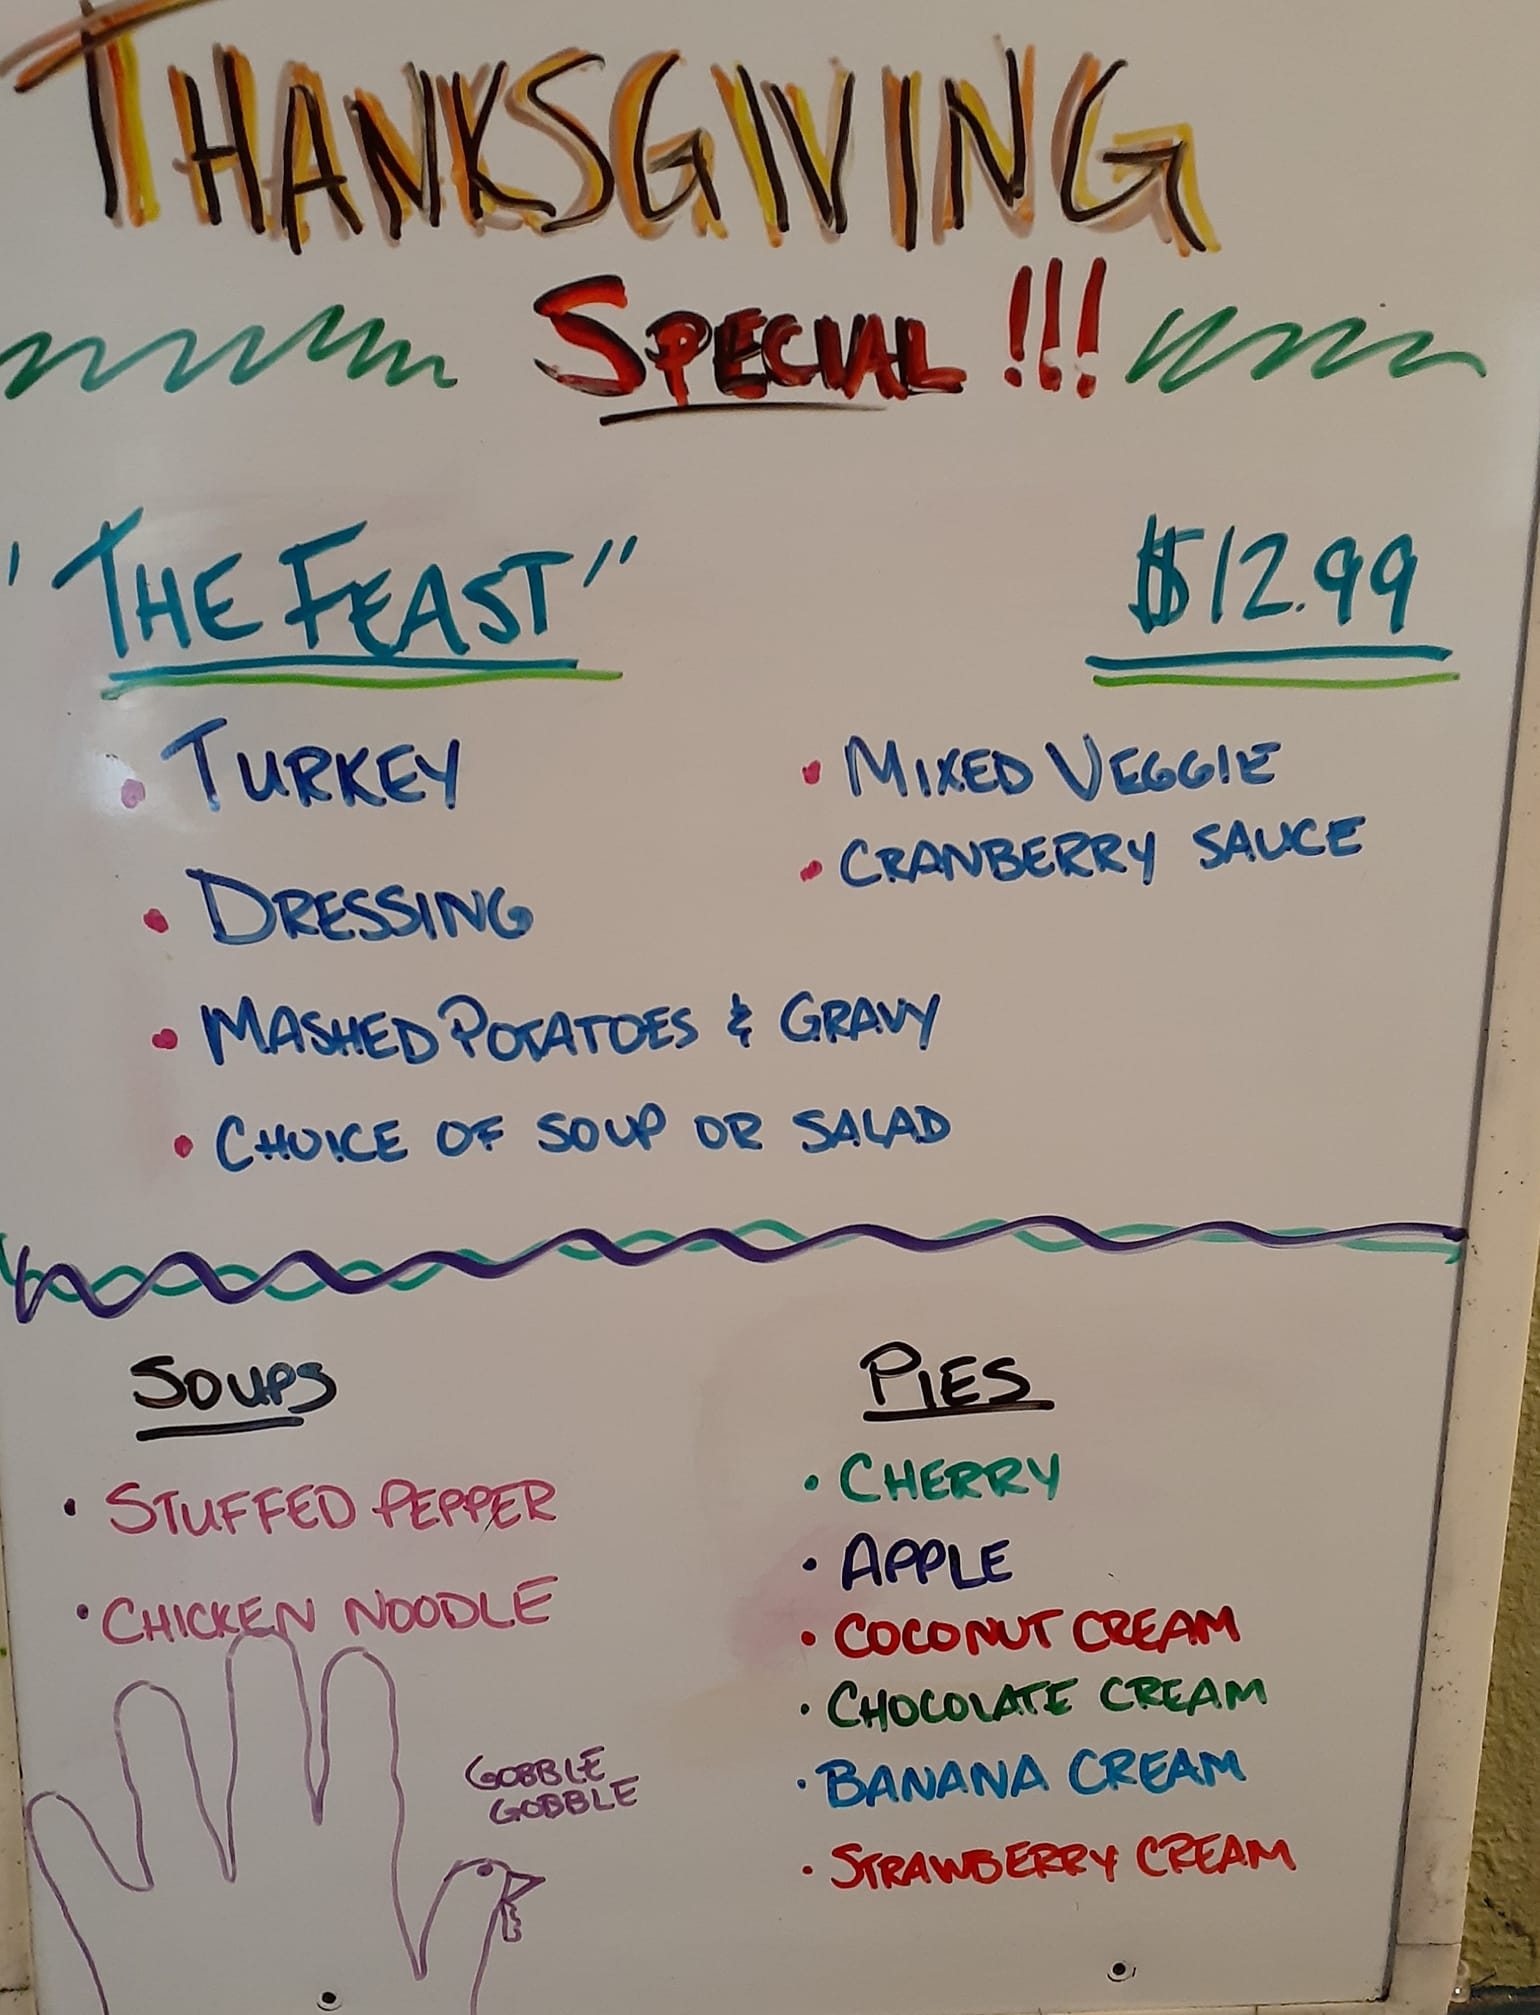 THANKSGIVING
SPECIAL!!!
"THE FEAST" $12.99
• TURKEY
• DRESSING
• MASHED POTATOES & GRAVY
• CHOICE OF SOUP OR SALAD
• MIXED VEGGIE
• CRANBERRY SAUCE
SOUPS
• STUFFED PEPPER
• CHICKEN NOODLE
GOBBLE
GOBBLE
PIES
• CHERRY
• APPLE
• COCONUT CREAM
• CHOCOLATE CREAM
• BANANA CREAM
• STRAWBERRY CREAM